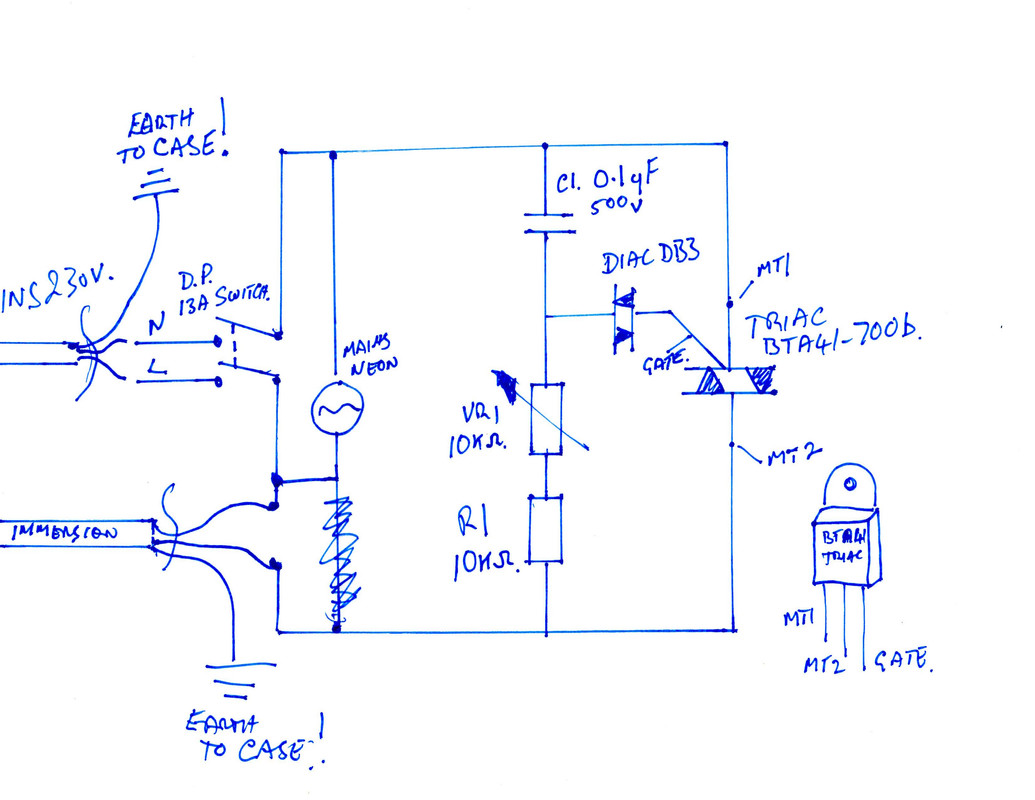 EARTH
TO CASE!
INS 230V.
D.P.
13A SWITCH.
N
L
MAINS
NEON
C1. 0.1µF
500V
DIAC DB3
MT1
TRIAC
BTA41-700b.
GATE.
VR1
10KΩ.
MT2
R1
10KΩ.
IMMERSION
BTA41
TRIAC
MT1
MT2
GATE.
EARTH
TO CASE!